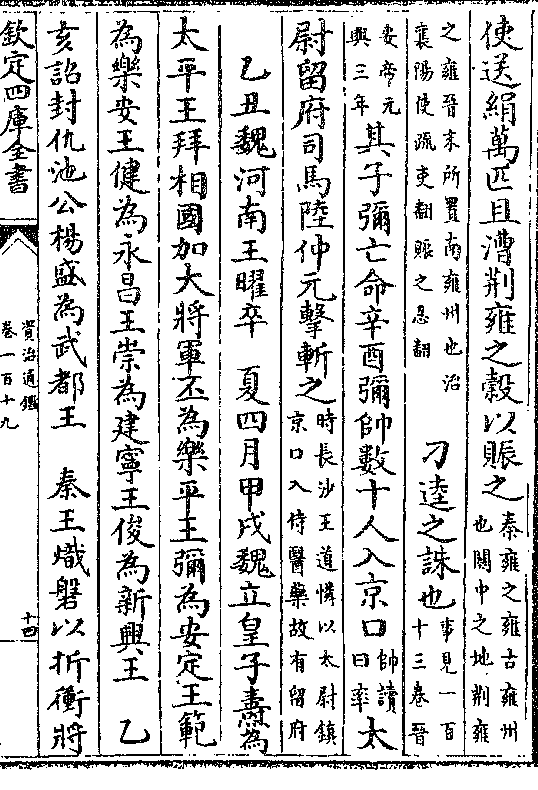 使送絹萬匹且漕荆雍之穀以賑之秦雍之雍古雍州也關中之地荆雍
之雍晉末所置南雍州也治襄陽使疏吏翻賑之忍翻　刁逵之誅也事見一百十三卷晉
安帝元興三年其子彌亡命辛酉彌帥數十人入京口帥讀曰率太
尉留府司馬陸仲元擊斬之時長沙王道憐以太尉鎮京口入侍醫藥故有留府
乙丑魏河南王曜卒　夏四月甲戌魏立皇子燾為
太平王拜相國加大將軍丕為樂平王彌為安定王範
為樂安王健為永昌王崇為建寧王俊為新興王　乙
亥詔封仇池公楊盛為武都王　秦王熾磐以折衝將
欽定四庫全書
資治通鑑
卷一百十九
十四